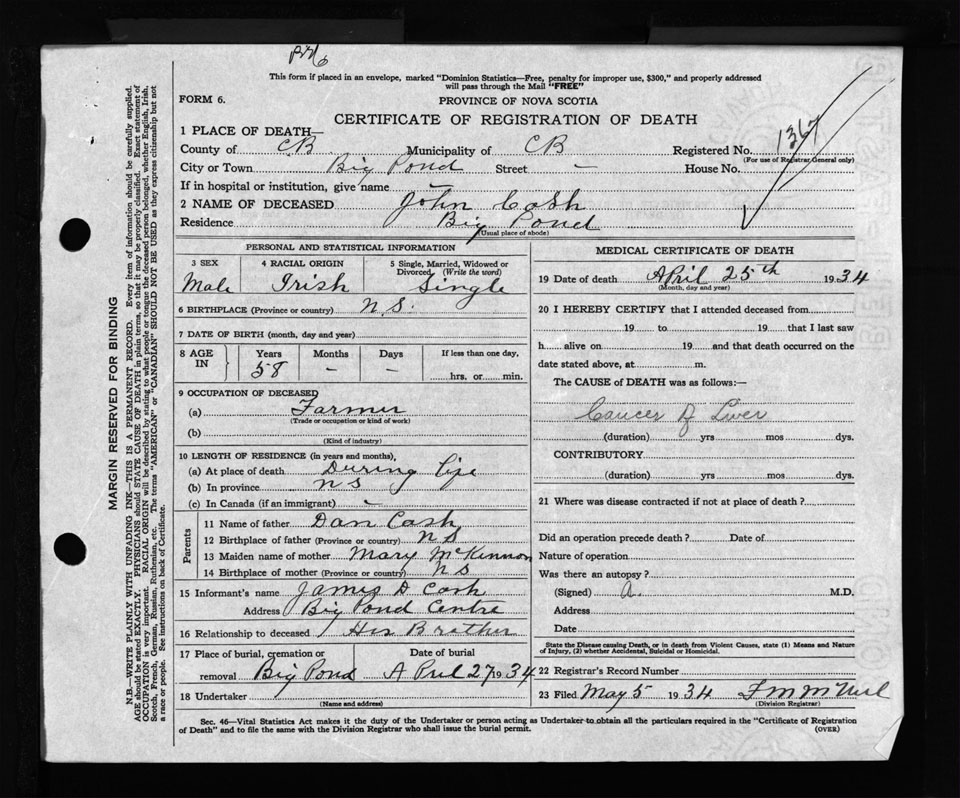 This form if placed in an envelope, marked "Dominion Statistics—Free, penalty for improper use, $300," and properly addressed
will pass through the Mail "FREE"
FORM 6.
PROVINCE OF NOVA SCOTIA
CERTIFICATE OF REGISTRATION OF DEATH
1367
1 PLACE OF DEATH—
County of CB Municipality of CB Registered No.
(For use of Registrar General only)
City or Town Big Pond Street — House No.
If in hospital or institution, give name —
2 NAME OF DECEASED John Cash
Residence Big Pond
(Usual place of abode)
MARGIN RESERVED FOR BINDING
N.B.—WRITE PLAINLY WITH UNFADING INK—THIS IS A PERMANENT RECORD. Every item of information should be carefully supplied.
AGE should be stated EXACTLY. PHYSICIANS should STATE CAUSE OF DEATH in plain terms, so that it may be properly classified. Exact statement of
OCCUPATION is very important. RACIAL ORIGIN will be described by stating to what people or tongue the deceased person belonged, whether English, Irish,
Scotch, French, German, Russian, Ruthenian, etc. The terms "AMERICAN" or "CANADIAN" SHOULD NOT BE USED as they express citizenship but not
a race or people. See instructions on back of Certificate.
PERSONAL AND STATISTICAL INFORMATION
3 SEX 4 RACIAL ORIGIN 5 Single, Married, Widowed or
Divorced (Write the word)
Male Irish Single
6 BIRTHPLACE (Province or country) N.S.
7 DATE OF BIRTH (month, day and year)
8 AGE IN Years Months Days If less than one day,
58 — — hrs. or min.
9 OCCUPATION OF DECEASED
(a) Farmer
(Trade or occupation or kind of work)
(b)
(Kind of industry)
10 LENGTH OF RESIDENCE (in years and months),
(a) At place of death During life
(b) In province N S
(c) In Canada (if an immigrant) -
Parents
11 Name of father Dan Cash
12 Birthplace of father (Province or country) N S
13 Maiden name of mother Mary McKinnon
14 Birthplace of mother (Province or country) N S
15 Informant's name James D Cash
Address Big Pond Centre
16 Relationship to deceased His Brother
17 Place of burial, cremation or Date of burial
removal Big Pond APril 27 1934
18 Undertaker
(Name and address)
MEDICAL CERTIFICATE OF DEATH
19 Date of death April 25th 1934
(Month, day and year)
20 I HEREBY CERTIFY that I attended deceased from
19 to 19 that I last saw
h alive on 19 and that death occurred on the
date stated above, at m.
The CAUSE of DEATH was as follows:—
Cancer of Liver
(duration) yrs mos dys.
CONTRIBUTORY
(duration) yrs mos dys.
21 Where was disease contracted if not at place of death?
Did an operation precede death? Date of
Nature of operation
Was there an autopsy?
(Signed) A. M.D.
Address
Date
State the Disease causing Death, or in death from Violent Causes, state (1) Means and Nature
of Injury, (2) whether Accidental, Suicidal or Homicidal.
22 Registrar's Record Number
23 Filed May 5 1934 F M McNeil
(Division Registrar)
Sec. 46—Vital Statistics Act makes it the duty of the Undertaker or person acting as Undertaker to obtain all the particulars required in the "Certificate of Registration
of Death" and to file the same with the Division Registrar who shall issue the burial permit.
(OVER)